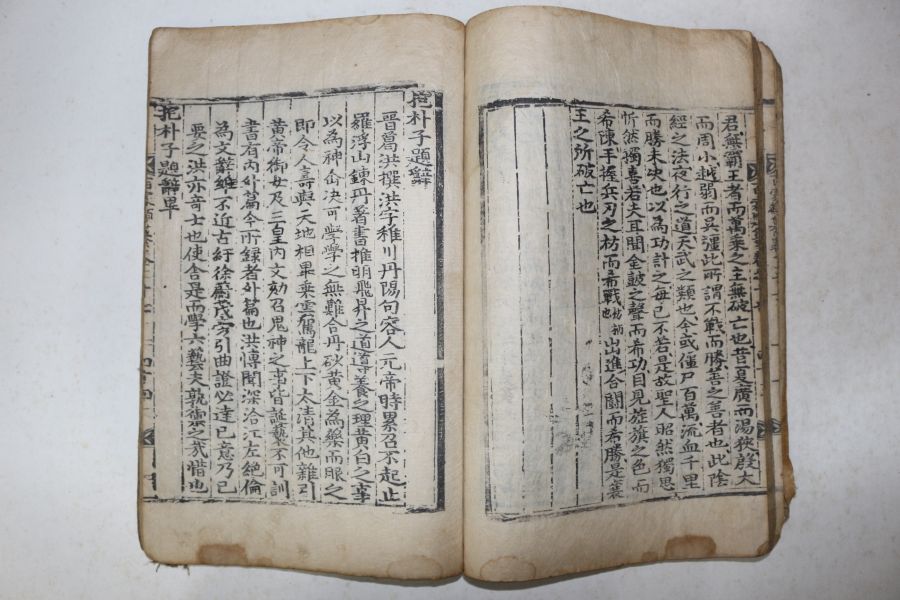 君無霸王者而萬乘之主無破亡也昔夏廣而湯狹殷大
而周小越弱而吳彊此所謂不戰而勝善之善者也此陰
經之法夜行之道天武之類也今或僵尸百萬流血千里
而勝未决也以為功計之每已不若是故聖人昭然獨思
忻然獨喜若夫耳聞金鼓之聲而希功目見旌旗之色而
希陳手握兵刃之枋而希戰枋柄也出進合鬪而希勝是襄
王之所破亡也
抱朴子題辭
晉葛洪撰洪字稚川丹陽句容人元帝時累召不起止
羅浮山鍊丹著書推明飛昇之道導養之理黄白之事
以為神仚决可學學之無難合丹砂黄金為藥而服之
即令人壽與天地相畢乘雲駕龍上下太清其他雜引
黄帝御女及三皇内文劾召鬼神之事皆誕褻不可訓
書有内外篇今所録者外篇也洪慱聞深洽江左絶倫
為文辭雖不近古紆徐蔚茂旁引曲證必達已意乃已
要之洪亦竒士也使舎是而學六藝夫孰禦之哉惜也
抱朴子題辭畢